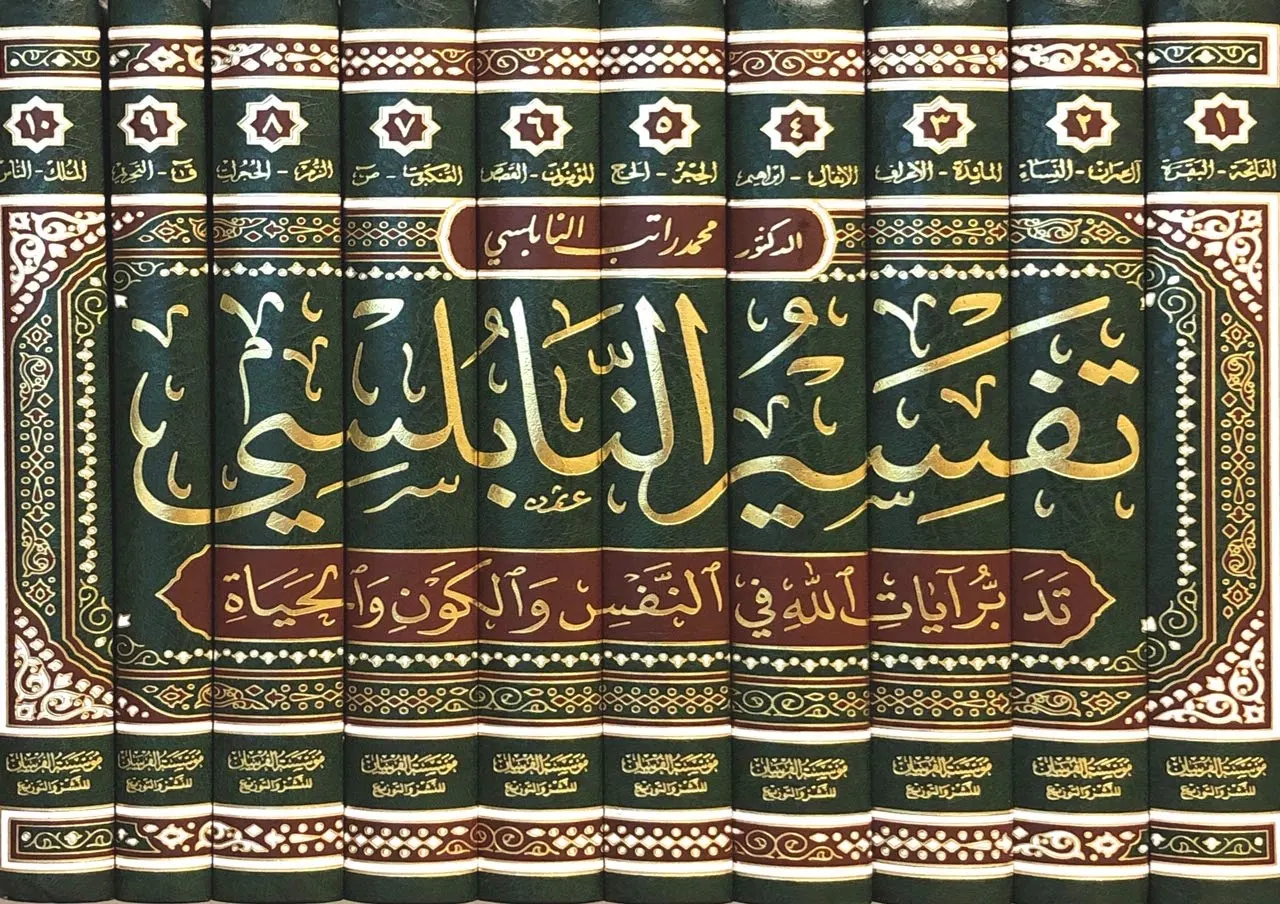 ١ ٢ ٣ ٤ ٥ ٦ ٧ ٨ ٩ ١٠
الفاتحة - البقرة
آل عمران - النساء
المائدة - الأعراف
الأنفال - إبراهيم
الحجر - الحج
المؤمنون - القصص
العنكبوت - ص
الزمر - الحجرات
ق - التحريم
الملك - الناس
الدكتور محمد راتب النابلسي
تَفسِيرُ النَّابُلسِي
تَدَبُّرُ آيَاتِ ٱللهِ فِي ٱلنَّفْسِ وَٱلكَوْنِ وَٱلحَيَاةِ
مؤسسة الفرسان مؤسسة الفرسان مؤسسة الفرسان مؤسسة الفرسان مؤسسة الفرسان مؤسسة الفرسان مؤسسة الفرسان مؤسسة الفرسان مؤسسة الفرسان مؤسسة الفرسان
للنشر والتوزيع للنشر والتوزيع للنشر والتوزيع للنشر والتوزيع للنشر والتوزيع للنشر والتوزيع للنشر والتوزيع للنشر والتوزيع للنشر والتوزيع للنشر والتوزيع